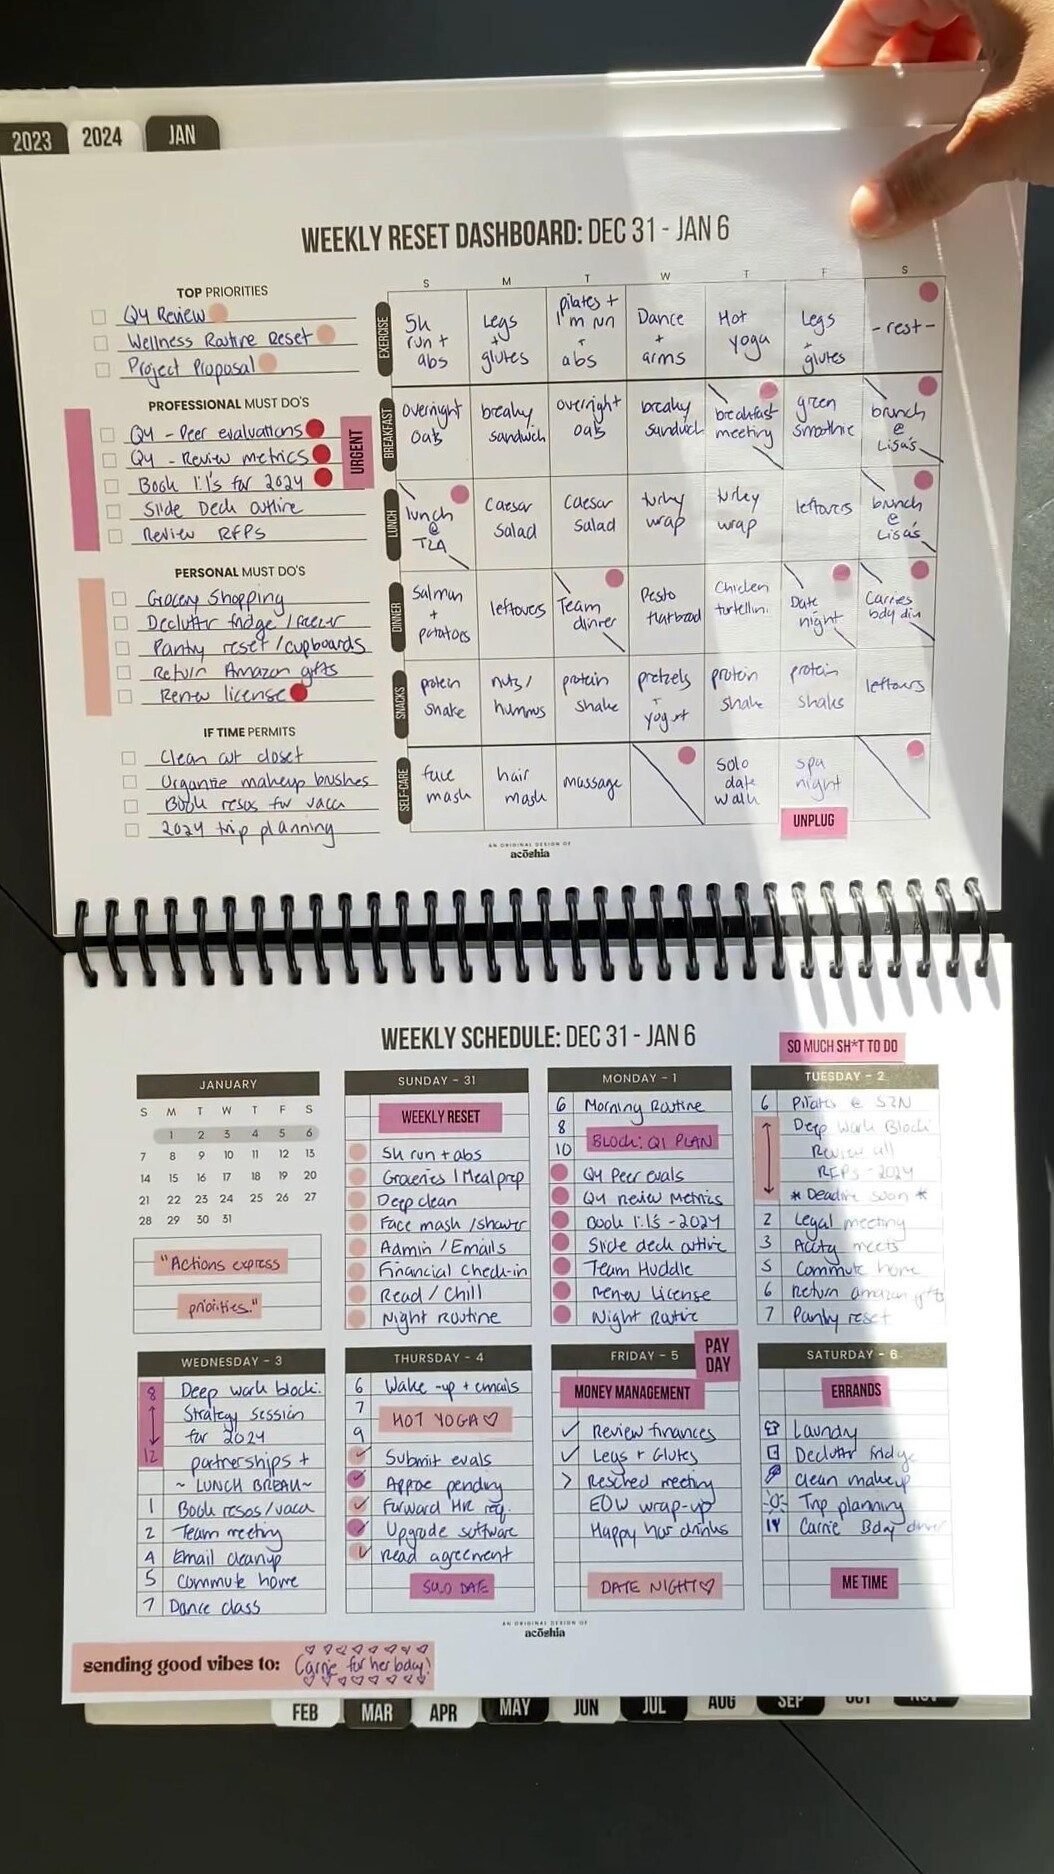 2023
2024
JAN
WEEKLY RESET DASHBOARD: DEC 31 - JAN 6
TOP PRIORITIES
Q4 Review
Wellness Routine Reset
Project Proposal
PROFESSIONAL MUST DO'S
Q4 - Peer evaluations
Q4 - Review metrics
Book 1:1's for 2024
Slide Deck outline
Review RFPS
URGENT
PERSONAL MUST DO'S
Grocery Shopping
Declutter fridge / freezer
Pantry reset / cupboards
Return Amazon gifts
Renew license
IF TIME PERMITS
Clean out closet
Organize makeup brushes
Book resos for vaca
2024 trip planning
S M T W T F S
EXERCISE
5k
run +
abs
Legs
+
glutes
pilates +
1 m run
+
abs
Dance
+
arms
Hot
yoga
Legs
+
glutes
- rest -
BREAKFAST
overnight
oats
breaky
sandwich
overnight
oats
breaky
sandwich
breakfast
meeting
green
smoothie
brunch
@
Lisa's
LUNCH
lunch
@
Caesar
salad
Caesar
salad
turkey
wrap
turkey
wrap
leftovers
brunch
@
Lisa's
DINNER
Salmon
+
potatoes
leftovers
Team
dinner
Pesto
flatbread
Chicken
tortellini
Date
night
Carries
bdy din
SNACKS
protein
shake
nuts/
hummus
protein
shake
pretzels
+
yogurt
protein
shake
protein
shake
leftovers
SELF-CARE
face
mask
hair
mask
massage
solo
date
walk
spa
night
UNPLUG
AN ORIGINAL DESIGN OF
acōshia
WEEKLY SCHEDULE: DEC 31 - JAN 6
SO MUCH SH*T TO DO
JANUARY
S M T W T F S
1 2 3 4 5 6
7 8 9 10 11 12 13
14 15 16 17 18 19 20
21 22 23 24 25 26 27
28 29 30 31
"Actions express
priorities."
SUNDAY - 31
WEEKLY RESET
5k run + abs
Groceries / Meal prep
Deep clean
Face mask / shower
Admin / Emails
Financial Check-in
Read / Chill
Night Routine
MONDAY - 1
6 Morning Routine
8
10 BLOCK: Q1 PLAN
Q4 Peer evals
Q4 review Metrics
Book 1:1's - 2024
Slide deck outline
Team Huddle
Renew License
Night Routine
TUESDAY - 2
6 Pilates @
Deep Work Block:
Review all
RFPS - 2024
* Deadline soon *
2 Legal meeting
3 meets
5 Commute home
6 Return amazon gifts
7 Pantry reset
WEDNESDAY - 3
8 Deep work block:
Strategy session
for 2024
12 partnerships +
~ LUNCH BREAK ~
1 Book resos/vaca
2 Team meeting
4 Email cleanup
5 Commute home
7 Dance class
THURSDAY - 4
6 Wake-up + emails
7
HOT YOGA ♡
9
Submit evals
Approve pending
Forward HR req.
Upgrade software
Read agreement
SOLO DATE
FRIDAY - 5
PAY
DAY
MONEY MANAGEMENT
✓ Review finances
✓ Legs + Glutes
> Resched meeting
EOW wrap-up
Happy hour drinks
DATE NIGHT ♡
SATURDAY - 6
ERRANDS
Laundry
Declutter fridge
Clean makeup
Trip planning
Carrie Bday dinner
ME TIME
AN ORIGINAL DESIGN OF
acōshia
sending good vibes to: Carrie for her bday!
FEB
MAR
APR
MAY
JUN
JUL
AUG
SEP
OCT
NOV